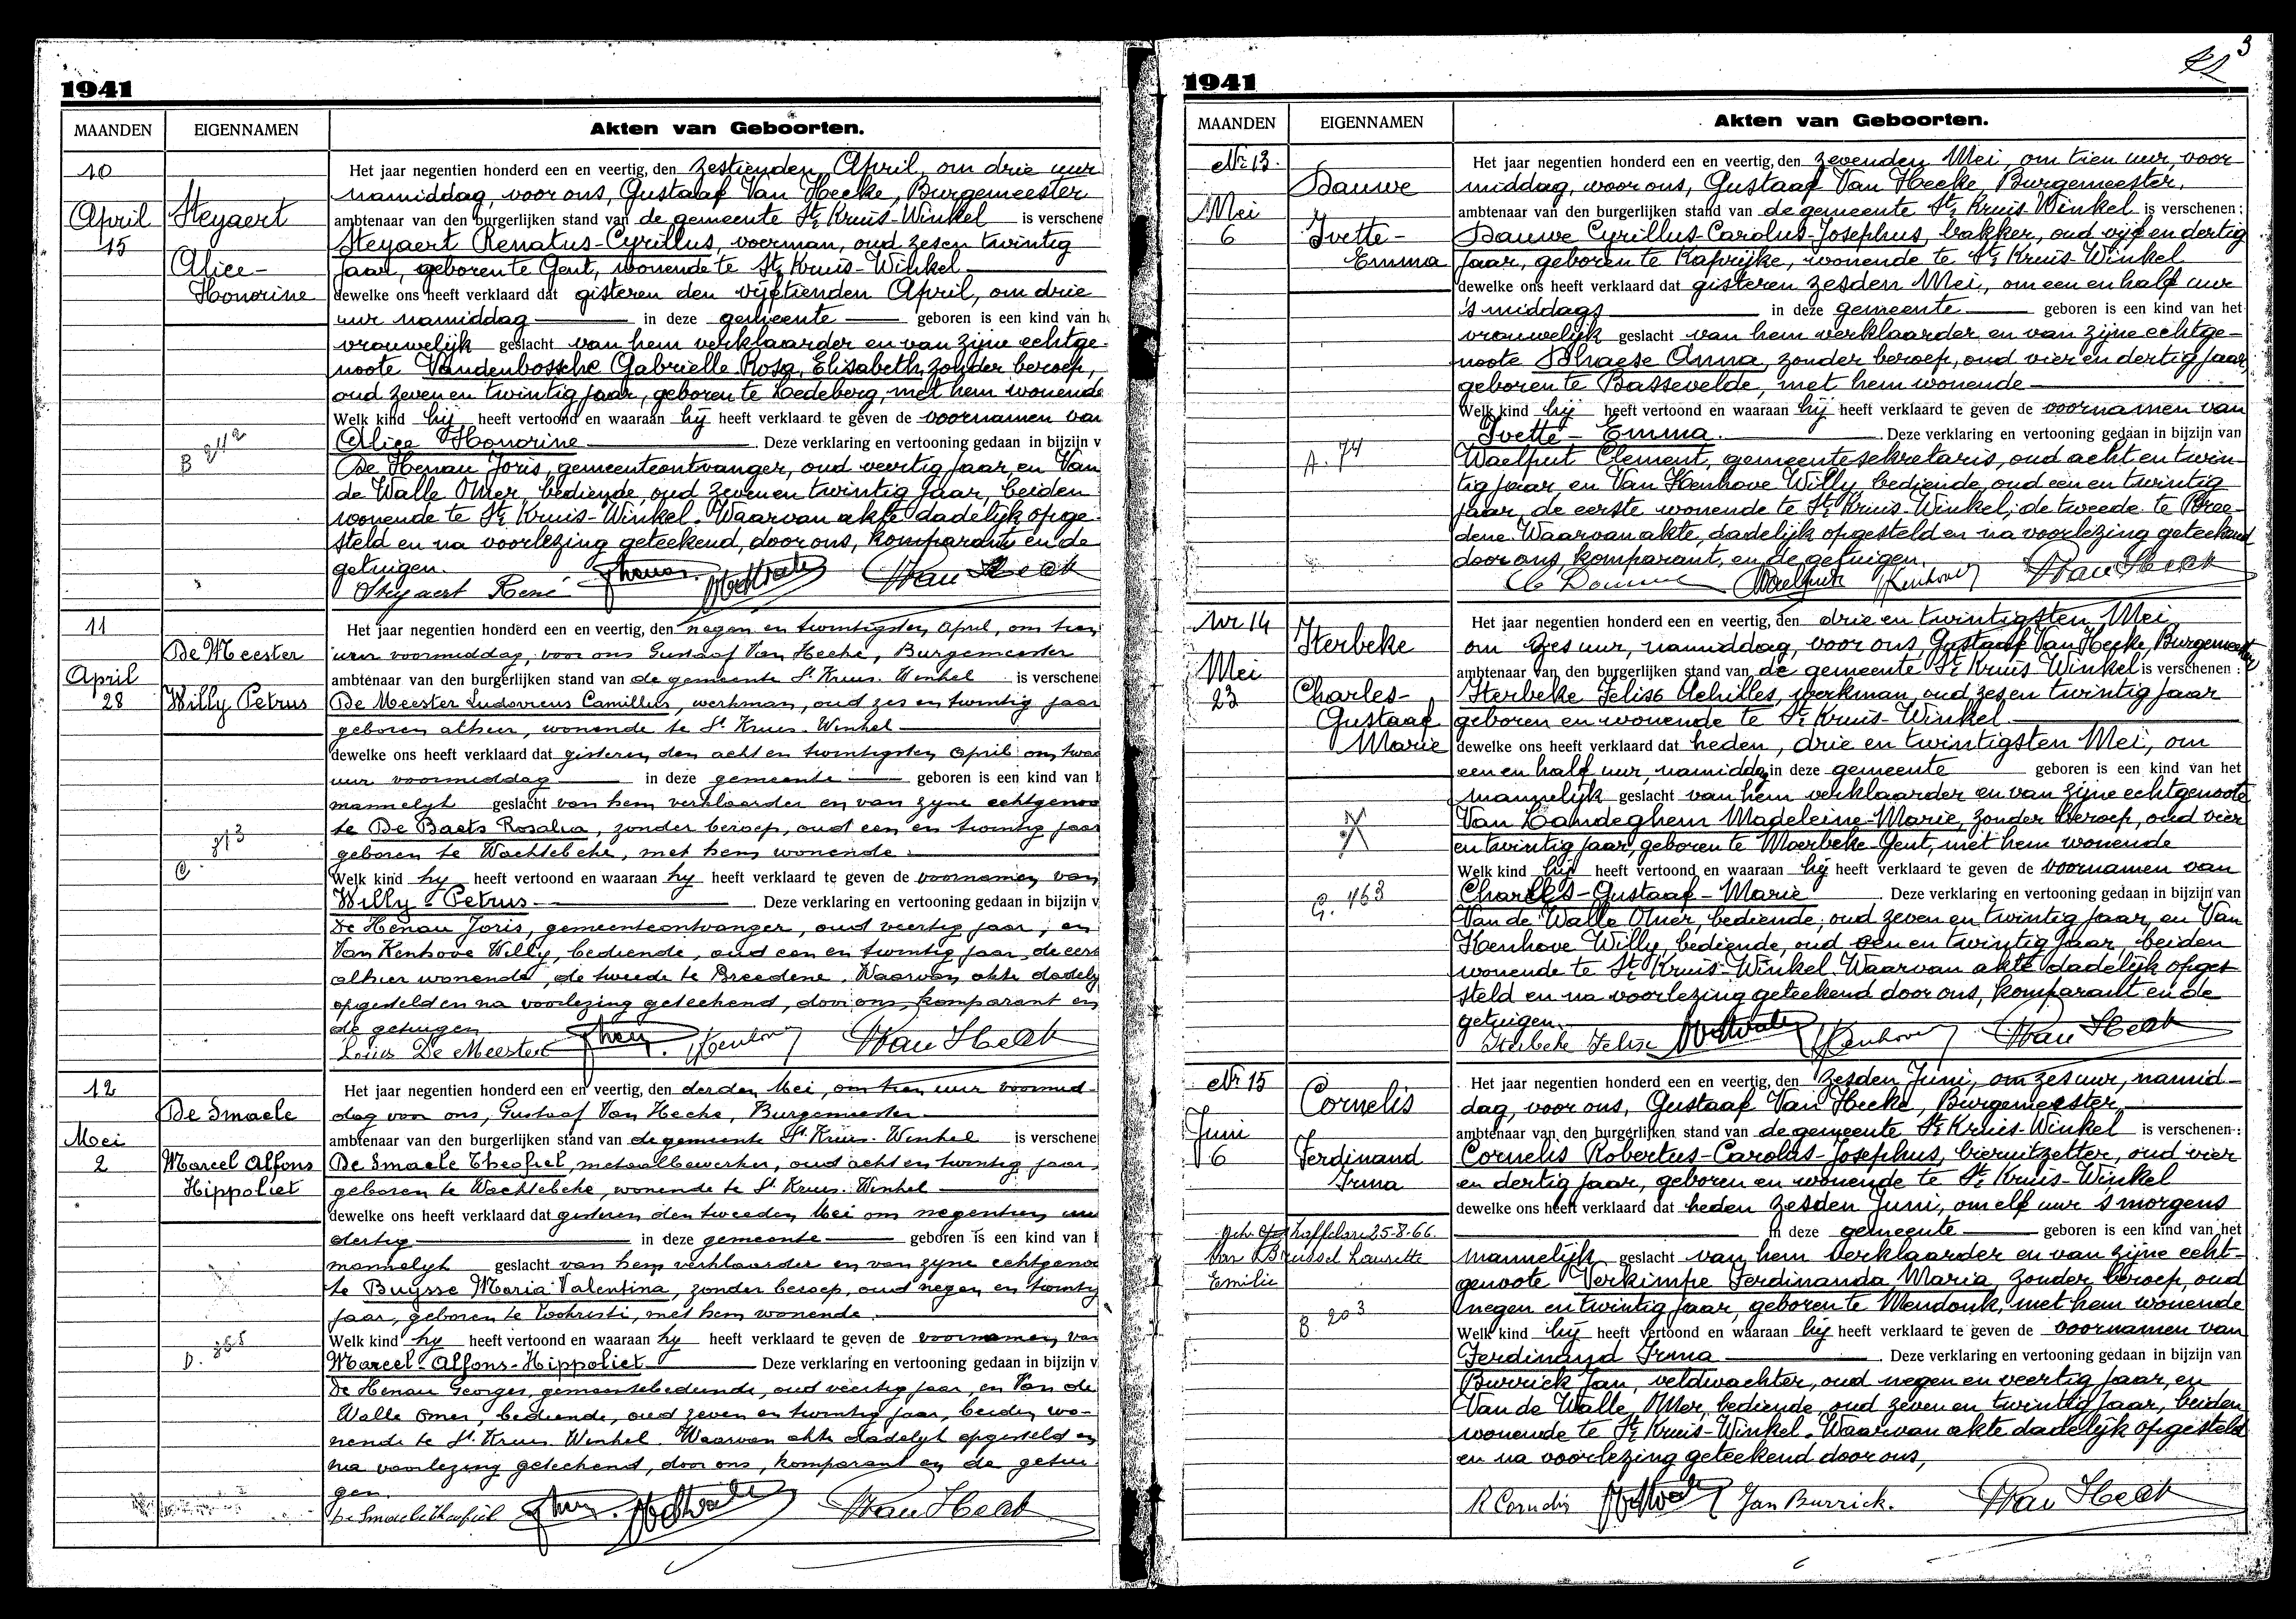 1941
MAANDEN
EIGENNAMEN
Akten van Geboorten.
10
April
15
Steyaert
Alice-
Honorine
Het jaar negentien honderd een en veertig, den zestienden April, om drie uur
namiddag, voor ons, Gustaaf Van Hecke, Burgemeester
ambtenaar van den burgerlijken stand van de gemeente St. Kruis-Winkel is verschene
Steyaert Renatus-Cyrillus, voerman, oud zesen twintig
jaar, geboren te Gent, wonende te St. Kruis-Winkel
dewelke ons heeft verklaard dat gisteren den vijftienden April, om drie
uur namiddag in deze gemeente geboren is een kind van h
vrouwelijk geslacht van hem verklaarder en van zijne echtge-
noote Vandenbossche Gabrielle Rosa, Elisabeth, zonder beroep,
oud zeven en twintig jaar, geboren te Ledeberg, met hem wonende
Welk kind hij heeft vertoond en waaraan hij heeft verklaard te geven de voornamen van
Alice Honorine. Deze verklaring en vertooning gedaan in bijzijn v
De Henau Joris, gemeenteontvanger, oud veertig jaar, en Van
de Walle Omer, bediende, oud zeven en twintig jaar, beiden
wonende te St. Kruis-Winkel. Waarvan akte dadelijk opge-
steld en na voorlezing geteekend, door ons, komparant en de
getuigen.
Steyaert René Van Heck
11
April
28
De Meester
Willy Petrus
Het jaar negentien honderd een en veertig, den negen en twintigsten April, om tien
uur voormiddag, voor ons Gustaaf Van Hecke, Burgemeester
ambtenaar van den burgerlijken stand van de gemeente St. Kruis-Winkel is verschene
De Meester Ludovicus Camillus, werkman, oud zes en twintig jaar
geboren alhier, wonende te St. Kruis-Winkel
dewelke ons heeft verklaard dat gisteren den acht en twintigsten April om twee
uur voormiddag in deze gemeente geboren is een kind van
mannelyk geslacht van hem verklaarder en van zyne echtgenoo
te De Baets Rosalia, zonder beroep, oud een en twintig jaar
geboren te Wachtebeke, met hem wonende.
Welk kind hy heeft vertoond en waaraan hy heeft verklaard te geven de voornamen van
Willy-Petrus. Deze verklaring en vertooning gedaan in bijzijn v
De Henau Joris, gemeenteontvanger, oud veertig jaar, en
Van Kenhove Willy, bediende, oud een en twintig jaar, de eers
alhier wonende, de tweede te Breedene. Waarvan akte dadely
opgesteld en na voorlezing geteekend, door ons, komparant en
de getuigen
Louis De Meester Kenhove Van Heck
12
Mei
2
De Smaele
Marcel Alfons
Hippoliet
Het jaar negentien honderd een en veertig, den derden Mei, om tien uur voormid-
dag voor ons, Gustaaf Van Hecke, Burgemeester
ambtenaar van den burgerlijken stand van de gemeente St. Kruis-Winkel is verschene
De Smaele Theofiel, metaalbewerker, oud acht en twintig jaar,
geboren te Wachtebeke, wonende te St. Kruis-Winkel
dewelke ons heeft verklaard dat gisteren den tweeden Mei om negentien uur
dertig in deze gemeente geboren is een kind van
mannelyk geslacht van hem verklaarder en van zyne echtgenoo
te Buysse Maria Valentina, zonder beroep, oud negen en twintig
jaar, geboren te Loochristi, met hem wonende.
Welk kind hy heeft vertoond en waaraan hy heeft verklaard te geven de voornamen van
Marcel-Alfons-Hippoliet Deze verklaring en vertooning gedaan in bijzijn v
De Henau Georges, gemeentebediende, oud veertig jaar, en Van de
Walle Omer, bediende, oud zeven en twintig jaar, beiden wo-
nende te St. Kruis-Winkel. Waarvan akte dadelyk opgesteld en
na voorlezing geteekend, door ons, komparant en de getui-
gen.
De Smaele Theofiel Van Heck
3
1941
MAANDEN
EIGENNAMEN
Akten van Geboorten.
Nr 13.
Mei
6
Dauwe
Ivette-
Emma
A. 74
Het jaar negentien honderd een en veertig, den zevenden Mei, om tien uur, voor
middag, voor ons, Gustaaf Van Hecke, Burgemeester,
ambtenaar van den burgerlijken stand van de gemeente St. Kruis-Winkel is verschenen:
Dauwe Cyrillus-Carolus-Josephus, bakker, oud vijf en dertig
jaar, geboren te Kaprijke, wonende te St. Kruis-Winkel
dewelke ons heeft verklaard dat gisteren zesden Mei, om een en half uur
's middags in deze gemeente geboren is een kind van het
vrouwelijk geslacht van hem verklaarder en van zijne echtge-
noote Dhaese Anna, zonder beroep, oud vier en dertig jaar,
geboren te Bassevelde, met hem wonende
Welk kind hij heeft vertoond en waaraan hij heeft verklaard te geven de voornamen van
Ivette-Emma. Deze verklaring en vertooning gedaan in bijzijn van
Waelput Clement, gemeentesekretaris, oud acht en twin-
tig jaar, en Van Kenhove Willy, bediende, oud een en twintig
jaar, de eerste wonende te St. Kruis-Winkel, de tweede te Bree-
dene. Waarvan akte, dadelijk opgesteld en na voorlezing geteekend
door ons, komparant, en de getuigen.
Waelput Kenhove Van Heck
Nr 14
Mei
23
Sterbeke
Charles-
Gustaaf
Marie
G. 463
Het jaar negentien honderd een en veertig, den drie en twintigsten Mei
om zes uur, namiddag, voor ons, Gustaaf Van Hecke, Burgemeester
ambtenaar van den burgerlijken stand van de gemeente St. Kruis Winkel is verschenen:
Sterbeke Felise Achilles, werkman, oud zesen twintig jaar
geboren en wonende te St. Kruis-Winkel.
dewelke ons heeft verklaard dat heden, drie en twintigsten Mei, om
een en half uur, namiddag in deze gemeente geboren is een kind van het
mannelijk geslacht van hem verklaarder en van zijne echtgenoote
Van Landeghem Madeleine-Marie, zonder beroep, oud vier
en twintig jaar, geboren te Moerbeke Gent, met hem wonende
Welk kind hij heeft vertoond en waaraan hij heeft verklaard te geven de voornamen van
Charles-Gustaaf-Marie Deze verklaring en vertooning gedaan in bijzijn van
Van de Walle Omer, bediende, oud zeven en twintig jaar, en Van
Kenhove Willy, bediende, oud een en twintig jaar, beiden
wonende te St. Kruis-Winkel. Waarvan akte dadelijk opge-
steld en na voorlezing geteekend door ons, komparant en de
getuigen.
Sterbeke Felise Kenhove Van Heck
Nr 15
Juni
6
Cornelis
Ferdinand
Irma
25-8-66.
Van Brussel Laurette
Emilie
B. 203
Het jaar negentien honderd een en veertig, den zesden Juni, om zes uur, namid-
dag, voor ons, Gustaaf Van Hecke, Burgemeester
ambtenaar van den burgerlijken stand van de gemeente St. Kruis-Winkel is verschenen:
Cornelis Robertus-Carolus-Josephus, bieruitzetter, oud vier
en dertig jaar, geboren en wonende te St. Kruis-Winkel
dewelke ons heeft verklaard dat heden zesden Juni, om elf uur 's morgens
in deze gemeente geboren is een kind van het
mannelijk geslacht van hem verklaarder en van zijne echt-
genoote Verkimpe Ferdinanda Maria, zonder beroep, oud
negen en twintig jaar, geboren te Mendonk, met hem wonende
Welk kind hij heeft vertoond en waaraan hij heeft verklaard te geven de voornamen van
Ferdinand Irma. Deze verklaring en vertooning gedaan in bijzijn van
Burrick Jan, veldwachter, oud negen en veertig jaar, en
Van de Walle, Omer, bediende, oud zeven en twintig jaar, beiden
wonende te St. Kruis-Winkel. Waarvan akte dadelijk opgesteld
en na voorlezing geteekend door ons,
R Cornelis Jan Burrick. Van Heck